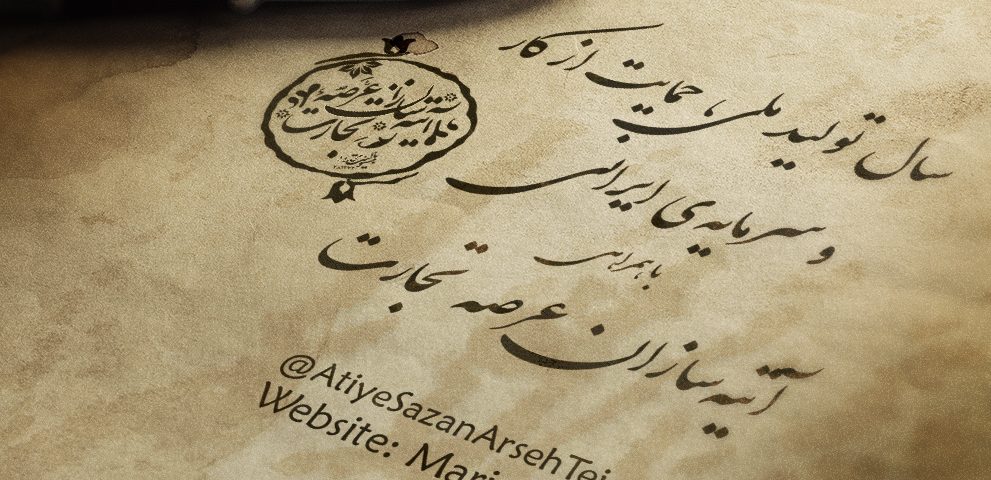 سال تولید ملی، حمایت از کار
و سرمایه‌ی ایرانی
با همراهی
آتیه سازان عرصه تجارت
آتیه سازان عرصه تجارت
@AtiyeSazanArsehTej
Website: Mari